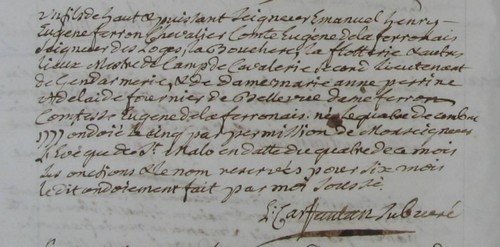 un fils de haut & puissant Seigneur Emanuel henry
Eugene ferron Chevalier Comte Eugene de la ferronais
seigneur des Loges, la Bouchere, la flotterie & autres
lieux Mestre de Camp de Cavalerie second lieutenant
de Gendarmerie, & de dame marie anne perrine
Adelaide fournier de Bellevue dame ferron
Comtesse Eugene de la ferronais. né le quatre decembre
1777 ondoié le cinq par permission de Monseigneur
L'Evêque de St. Malo en datte du quatre de ce mois
les onctions & le nom reservées pour six mois
le dit ondoiement fait par moi sousse.